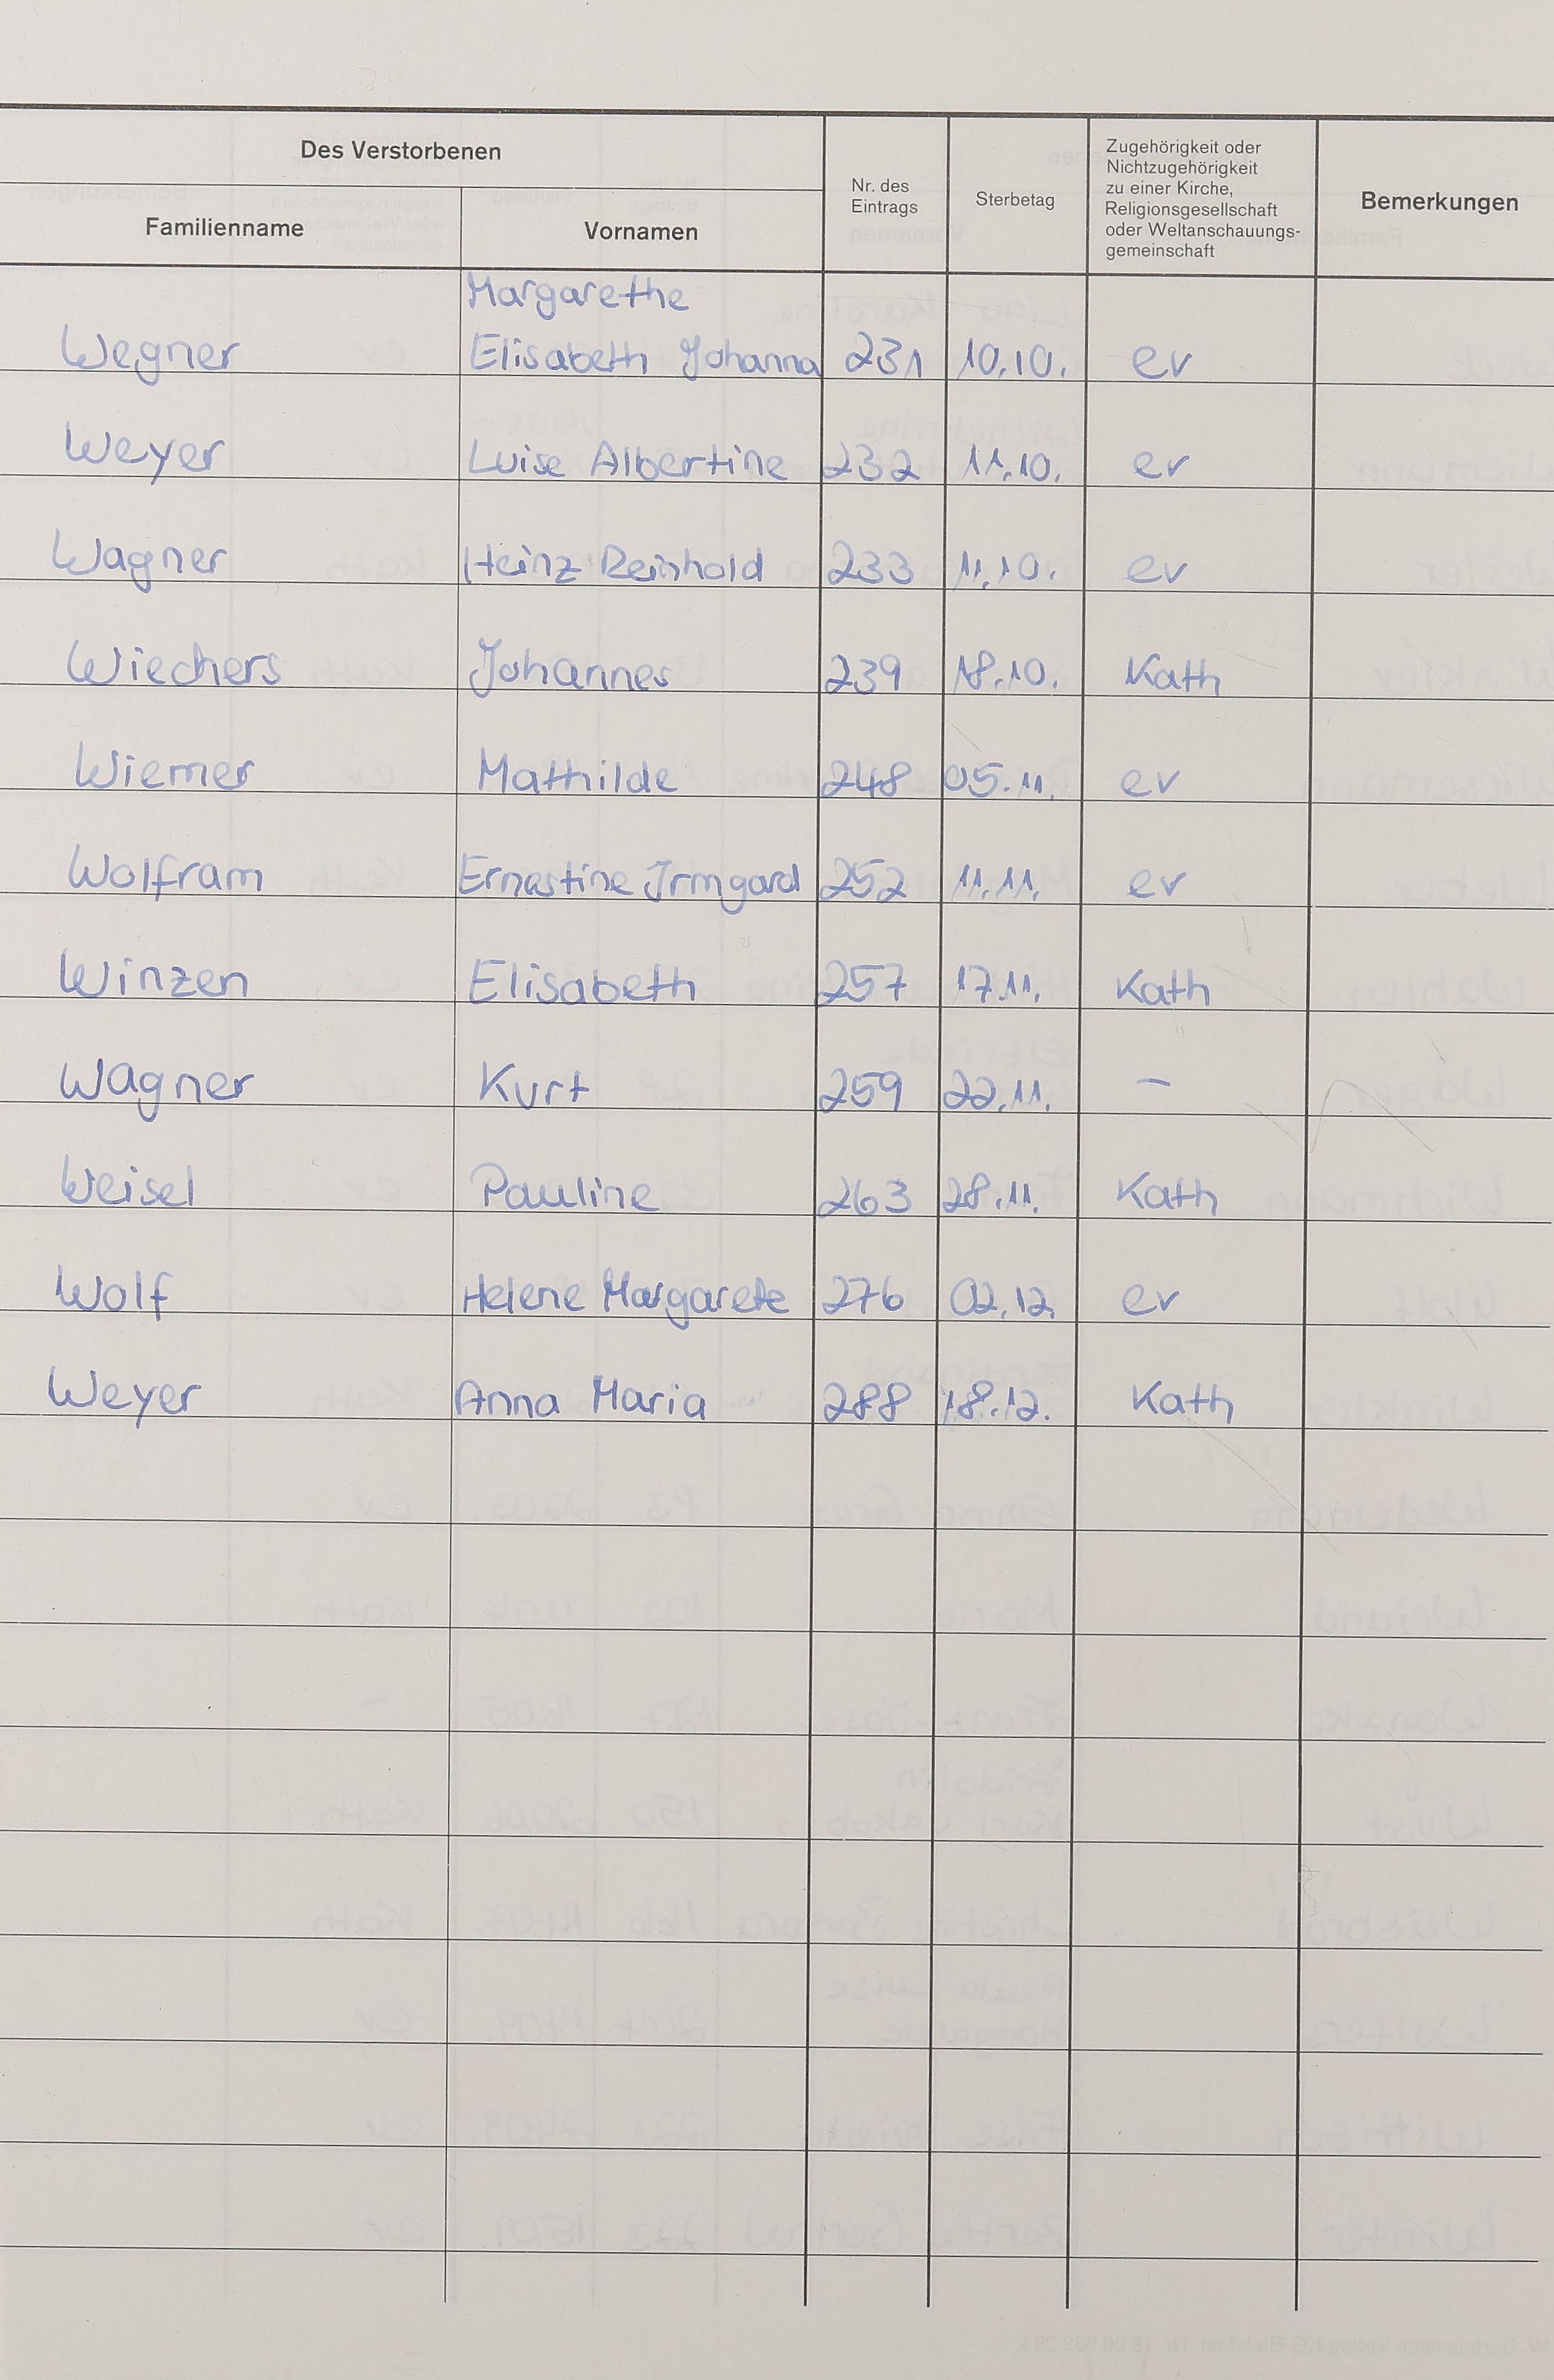 Des Verstorbenen
Familienname Vornamen Nr. des Eintrags Sterbetag Zugehörigkeit oder Nichtzugehörigkeit zu einer Kirche, Religionsgesellschaft oder Weltanschauungs- gemeinschaft Bemerkungen
Margarethe
Wegner Elisabeth Johanna 231 10.10. ev
Weyer Luise Albertine 232 11.10. ev
Wagner Heinz Reinhold 233 11.10. ev
Wiechers Johannes 239 18.10. Kath
Wiemer Mathilde 248 05.11. ev
Wolfram Ernestine Irmgard 252 11.11. ev
Winzen Elisabeth 257 17.11. Kath
Wagner Kurt 259 22.11. —
Weisel Pauline 263 28.11. Kath
Wolf Helene Margarete 276 02.12. ev
Weyer Anna Maria 288 18.12. Kath